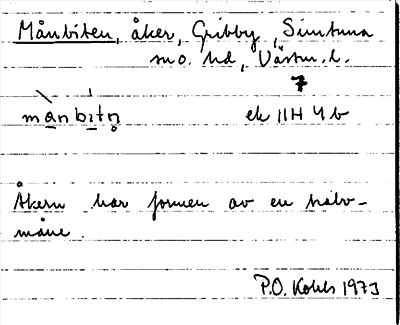 Månbiten, åker, Gribby, Simtuna
sn o. hd, Västm. l.
7
månbitn̥
ek 11H 4b
Åkern har formen av en halv-
måne.
P.O. Kohls 1973